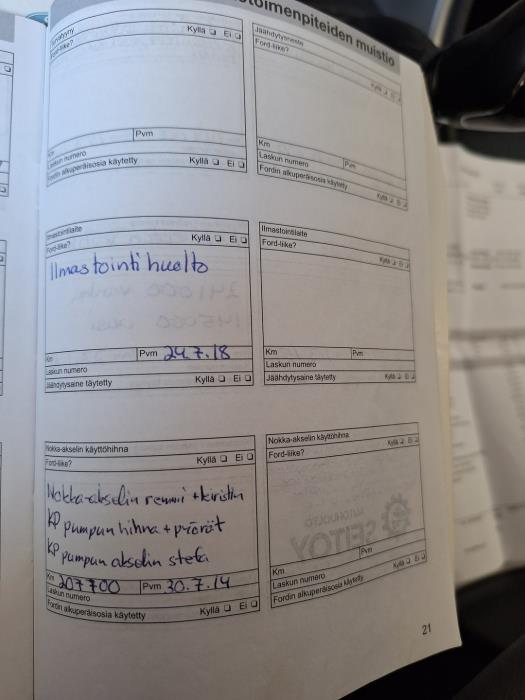 toimenpiteiden muistio
Ford-liike? Kyllä ❏ Ei ❏
Km Pvm
Laskun numero
Fordin alkuperäisosia käytetty Kyllä ❏ Ei ❏
Jäähdytysneste
Ford-liike?
Kyllä ❏ Ei ❏
Km Pvm
Laskun numero
Fordin alkuperäisosia käytetty
Kyllä ❏ Ei ❏
Ilmastointilaite
Ford-liike? Kyllä ❏ Ei ❏
Ilmastointi huolto
Km Pvm 24.7.18
Laskun numero
Jäähdytysaine täytetty Kyllä ❏ Ei ❏
Ilmastointilaite
Ford-liike? Kyllä ❏ Ei ❏
Km Pvm
Laskun numero
Jäähdytysaine täytetty Kyllä ❏ Ei ❏
Nokka-akselin käyttöhihna
Ford-liike? Kyllä ❏ Ei ❏
Nokka-akselin remmi + kiristin
KP pumpun hihna + pyörät
KP pumpun akselin stefa
Km 207700 Pvm 30.7.14
Laskun numero
Fordin alkuperäisosia käytetty Kyllä ❏ Ei ❏
Nokka-akselin käyttöhihna
Ford-liike? Kyllä ❏ Ei ❏
Km Pvm
Laskun numero
Fordin alkuperäisosia käytetty Kyllä ❏ Ei ❏
21